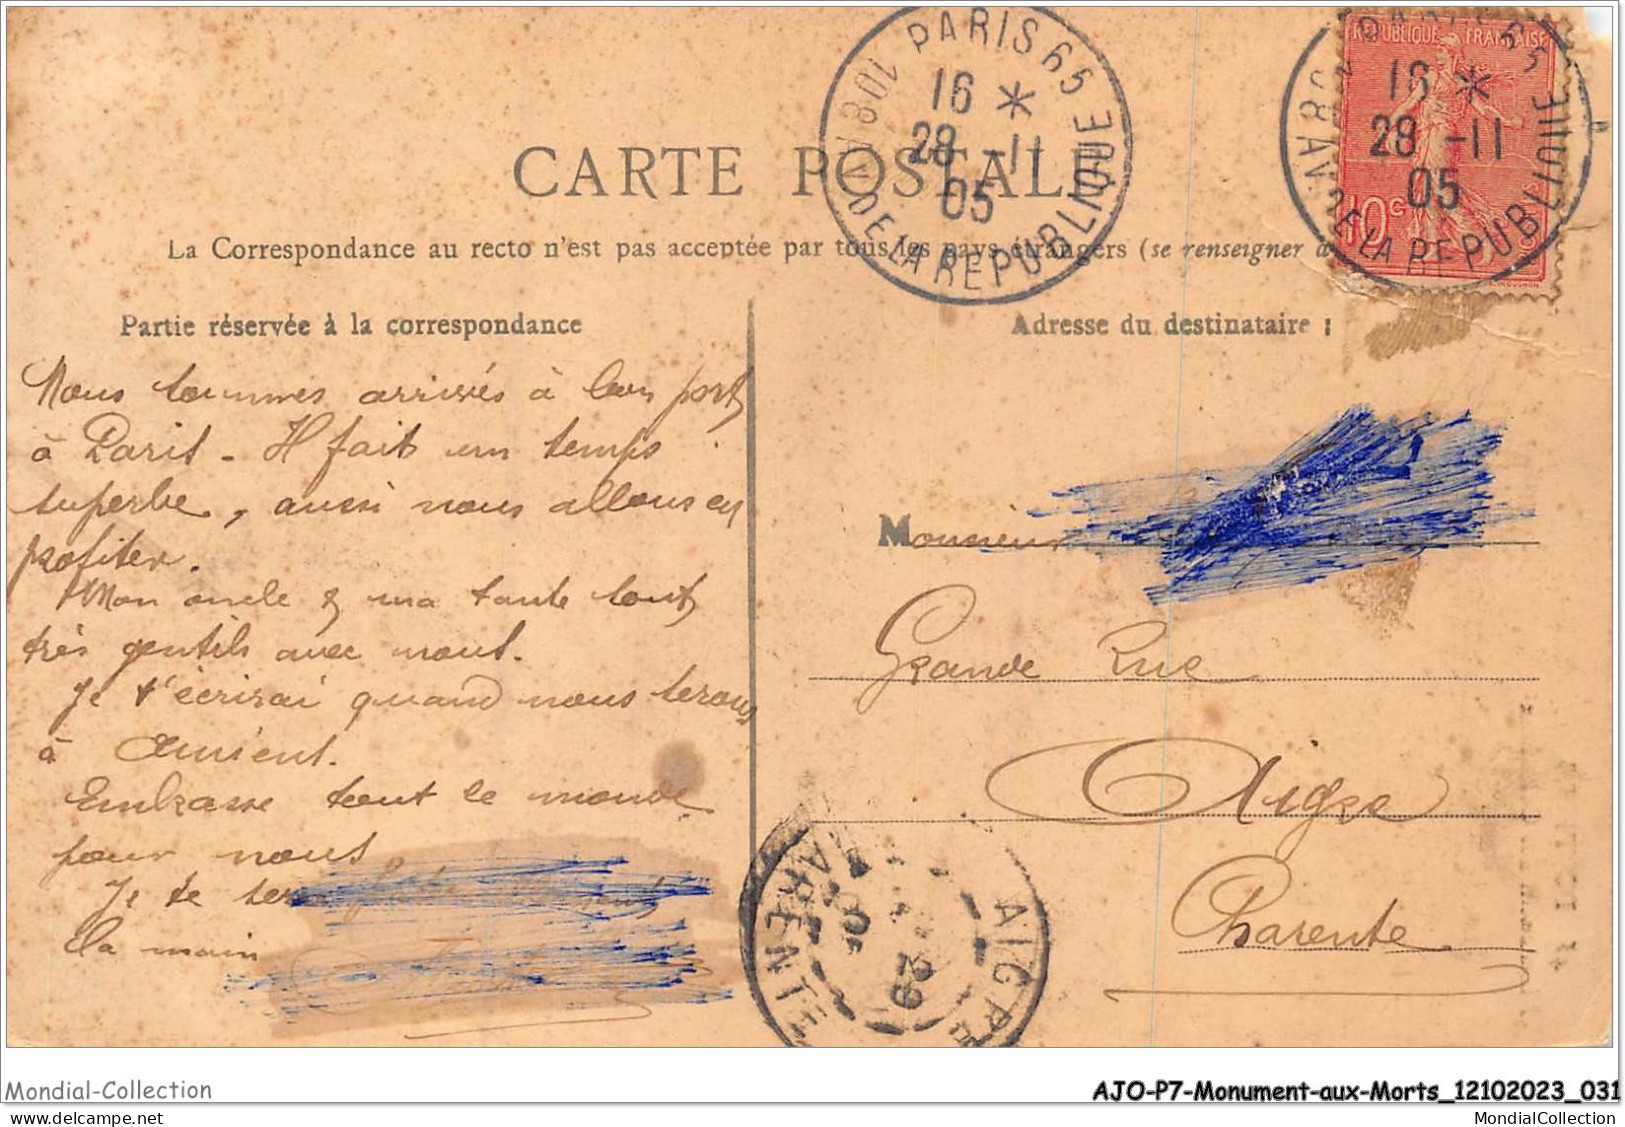 PARIS 65
16 *
28 -11
05
108 AV. DE LA REPUBLIQUE
REPUBLIQUE FRANÇAISE
16 *
28 -11
05
10c
LA REPUBLIQUE
CARTE POSTALE
La Correspondance au recto n'est pas acceptée par tous les pays étrangers (se renseigner à
Partie réservée à la correspondance
Adresse du destinataire :
Nous sommes arrivés à bon port
à Paris - Il fait un temps
superbe, aussi nous allons en
profiter.
Mon oncle & ma tante sont
très gentils avec nous.
Je t'écrirai quand nous serons
à Amiens.
Embrasse tout le monde
pour nous
Je te
la main
Monsieur
Grande Rue
Aigre
Charente
AIGRE
29
CHARENTE
Mondial-Collection
AJO-P7-Monument-aux-Morts_12102023_031
MondialCollection